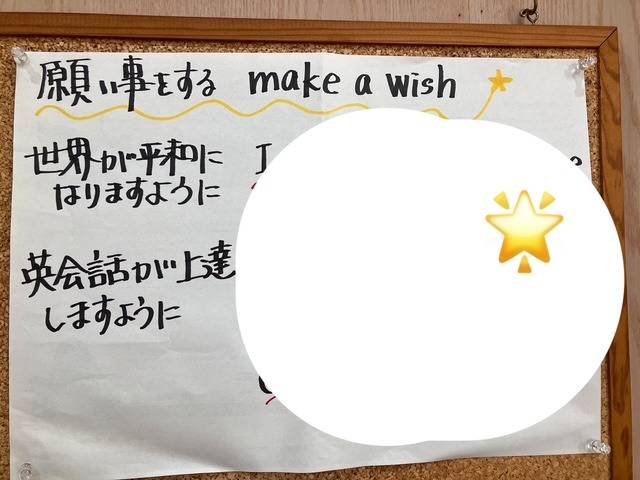 願い事をする make a wish
世界が平和に I
なりますように
英会話が上達
しますように